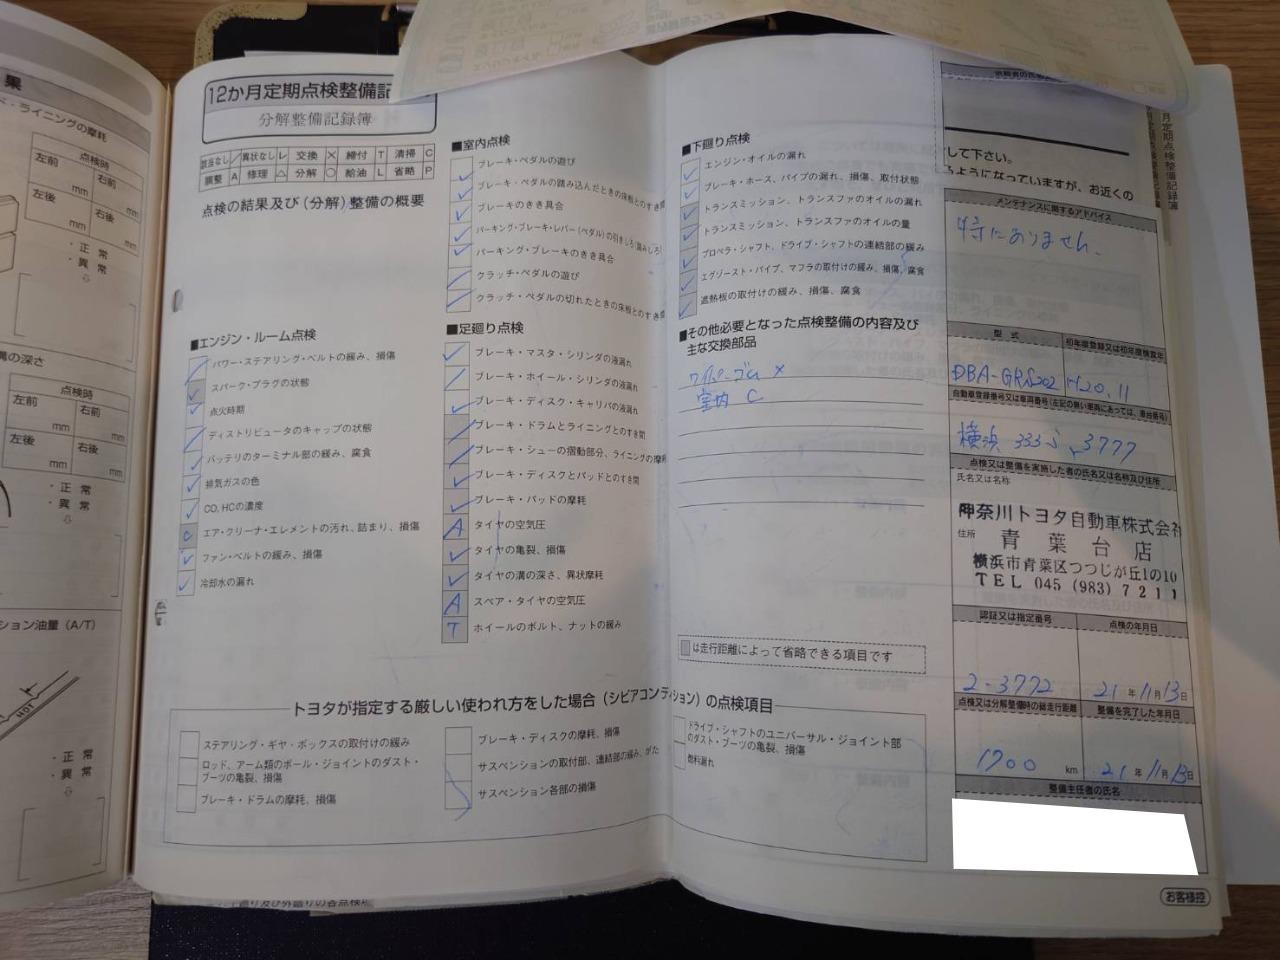 果
ライニングの摩耗
点検時
左前
右前
mm
mm
左後
右後
mm
mm
・正 常
・異 常
溝の深さ
点検時
左前
右前
mm
mm
左後
右後
mm
mm
・正 常
・異 常
ション油量（A/T）
HOT
・正 常
・異 常
12か月定期点検整備記
分解整備記録簿
該当なし ／ 異状なし レ 交換 × 締付 T 清掃 C
調整 A 修理 △ 分解 ○ 給油 L 省略 P
点検の結果及び（分解）整備の概要
■エンジン・ルーム点検
パワー・ステアリング・ベルトの緩み、損傷
スパーク・プラグの状態
点火時期
ディストリビュータのキャップの状態
バッテリのターミナル部の緩み、腐食
排気ガスの色
CO, HCの濃度
C エア・クリーナ・エレメントの汚れ、詰まり、損傷
ファン・ベルトの緩み、損傷
冷却水の漏れ
■室内点検
ブレーキ・ペダルの遊び
ブレーキ・ペダルの踏み込んだときの床板とのすき間
ブレーキのきき具合
パーキング・ブレーキ・レバー（ペダル）の引きしろ（踏みしろ）
パーキング・ブレーキのきき具合
クラッチ・ペダルの遊び
クラッチ・ペダルの切れたときの床板とのすき間
■足廻り点検
ブレーキ・マスタ・シリンダの液漏れ
ブレーキ・ホイール・シリンダの液漏れ
ブレーキ・ディスク・キャリパの液漏れ
ブレーキ・ドラムとライニングとのすき間
ブレーキ・シューの摺動部分、ライニングの摩耗
ブレーキ・ディスクとパッドとのすき間
ブレーキ・パッドの摩耗
A タイヤの空気圧
タイヤの亀裂、損傷
タイヤの溝の深さ、異状摩耗
A スペア・タイヤの空気圧
T ホイールのボルト、ナットの緩み
■下廻り点検
エンジン・オイルの漏れ
ブレーキ・ホース、パイプの漏れ、損傷、取付状態
トランスミッション、トランスファのオイルの漏れ
トランスミッション、トランスファのオイルの量
プロペラ・シャフト、ドライブ・シャフトの連結部の緩み
エグゾースト・パイプ、マフラの取付けの緩み、損傷、腐食
遮熱板の取付けの緩み、損傷、腐食
■その他必要となった点検整備の内容及び
主な交換部品
ワイパーゴム ×
室内 C
は走行距離によって省略できる項目です
トヨタが指定する厳しい使われ方をした場合（シビアコンディション）の点検項目
ステアリング・ギヤ・ボックスの取付けの緩み
ロッド、アーム類のボール・ジョイントのダスト・
ブーツの亀裂、損傷
ブレーキ・ドラムの摩耗、損傷
ブレーキ・ディスクの摩耗、損傷
サスペンションの取付部、連結部の緩み、がた
サスペンション各部の損傷
ドライブ・シャフトのユニバーサル・ジョイント部
のダスト・ブーツの亀裂、損傷
燃料漏れ
して下さい。
るようになっていますが、お近くの
メンテナンスに関するアドバイス
特にありません。
型 式
初年度登録又は初年度検査年
DBA-GRS202
H20.11
自動車登録番号又は車両番号（左記の無い車両にあっては、車台番号）
横浜 333 ら 3777
点検又は整備を実施した者の氏名又は名称及び住所
氏名又は名称
神奈川トヨタ自動車株式会社
住所
青 葉 台 店
横浜市青葉区つつじが丘1の10
TEL 045 (983) 7211
認証又は指定番号
点検の年月日
2-3772
21 年 11 月 13 日
点検又は分解整備時の総走行距離
整備を完了した年月日
1700 km
21 年 11 月 13 日
整備主任者の氏名
お客様控
月定期点検整備記録簿